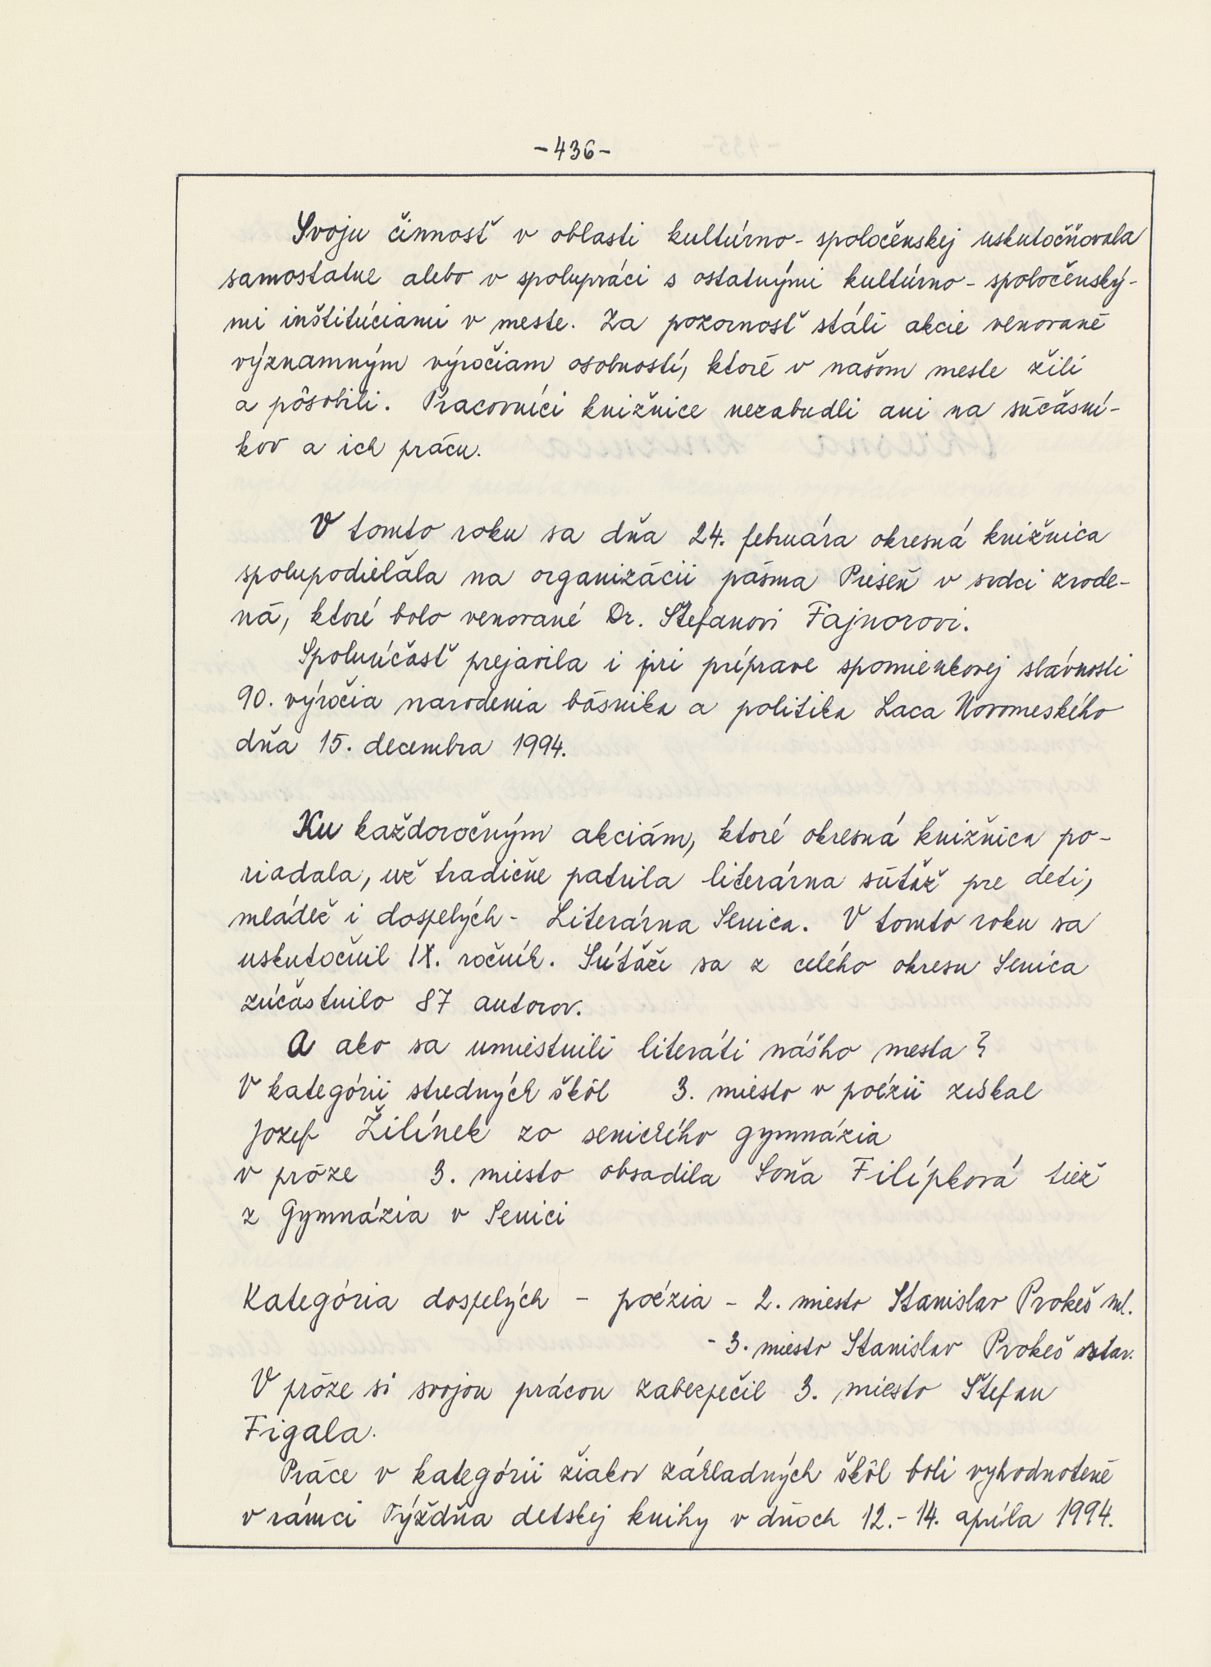 -436-
Svoju činnosť v oblasti kultúrno-spoločenskej uskutočňovala
samostatne alebo v spolupráci s ostatnými kultúrno-spoločenský-
mi inštitúciami v meste. Za pozornosť stáli akcie venované
významným výročiam osobností, ktoré v našom meste žili
a pôsobili. Pracovníci knižnice nezabudli ani na súčasní-
kov a ich prácu.
V tomto roku sa dňa 24. februára okresná knižnica
spolupodieľala na organizácii pásma Pieseň v srdci zrode-
ná, ktoré bolo venované Dr. Štefanovi Fajnorovi.
Spoluúčasť prejavila i pri príprave spomienkovej slávnosti
90. výročia narodenia básnika a politika Laca Novomeského
dňa 15. decembra 1994.
Ku každoročným akciám, ktoré okresná knižnica po-
riadala, už tradične patrila literárna súťaž pre deti,
mládež i dospelých - Literárna Senica. V tomto roku sa
uskutočnil IX. ročník. Súťaže sa z celého okresu Senica
zúčastnilo 87 autorov.
A ako sa umiestnili literáti nášho mesta?
V kategórii stredných škôl 3. miesto v poézii získal
Jozef Žilínek zo senického gymnázia
v próze 3. miesto obsadila Soňa Filípková tiež
z Gymnázia v Senici
Kategória dospelých - poézia - 2. miesto Stanislav Prokeš ml.
- 3. miesto Stanislav Prokeš star.
V próze si svojou prácou zabezpečil 3. miesto Štefan
Figala.
Práce v kategórii žiakov základných škôl boli vyhodnotené
v rámci Týždňa detskej knihy v dňoch 12.-14. apríla 1994.